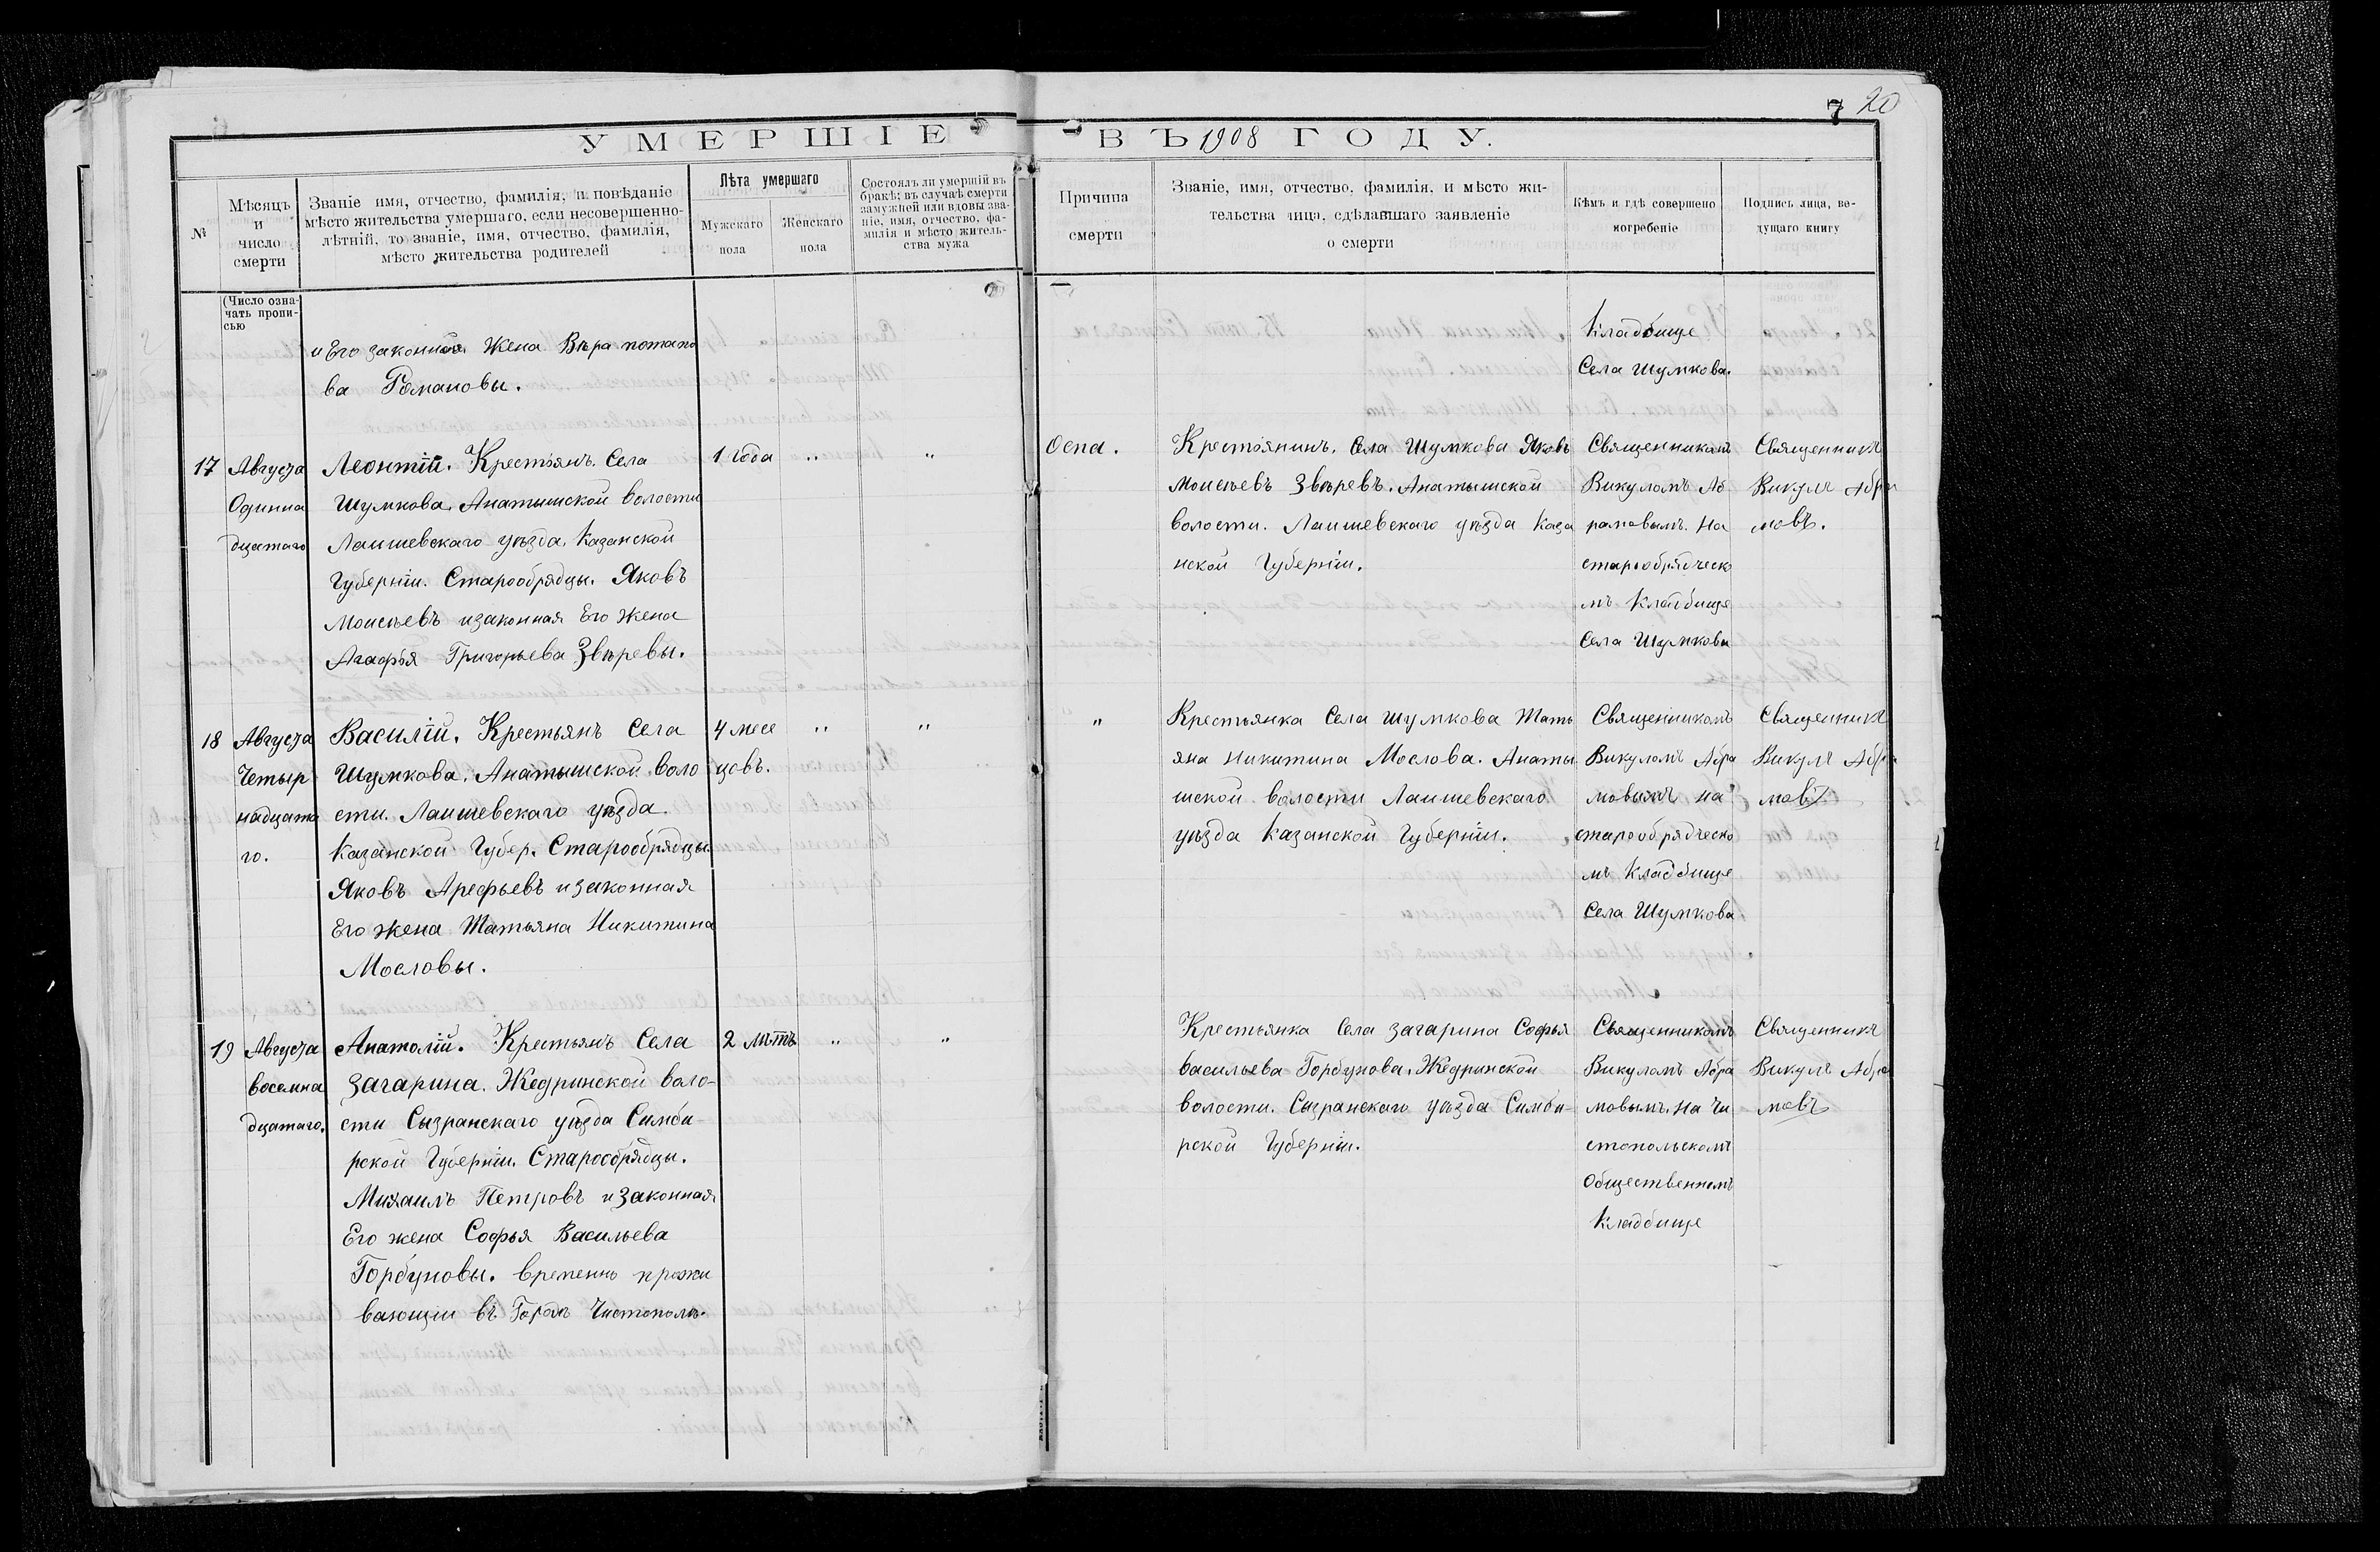 7 20
УМЕРШІЕ ВЪ 1908 ГОДУ.
№
Мѣсяцъ
и
число
смерти
Званіе имя, отчество, фамилія, и повѣданіе
мѣсто жительства умершаго, если несовершенно-
лѣтній, то званіе, имя, отчество, фамилія,
мѣсто жительства родителей
Лѣта умершаго
Мужскаго
пола
Женскаго
пола
Состоялъ ли умершій въ
бракѣ; въ случаѣ смерти
замужней или вдовы зва-
ніе, имя, отчество, фа-
милія и мѣсто житель-
ства мужа
Причина
смерти
Званіе, имя, отчество, фамилія, и мѣсто жи-
тельства лица, сдѣлавшаго заявленіе
о смерти
Кѣмъ и гдѣ совершено
погребеніе
Подпись лица, ве-
дущаго книгу
(Число озна-
чать пропи-
сью
и Его законная Жена Вѣра потапо
ва Романовы.
Кладбище
Села Шумкова.
17
Августа
Одинна
дцатаго
Леонтій. Крестьянъ. Села
Шумкова. Анатышской волости
Лаишевскаго уѣзда. Казанской
Губерніи. Старообрядцы. Яковъ
Моисѣевъ и законная Его Жена
Агафья Григорьева Звѣревы.
1 года „
„
Оспа.
Крестьянинъ. Села Шумкова Яковъ
Моисѣевъ Звѣревъ. Анатышской
волости. Лаишевскаго уѣзда Каза
нской Губерніи.
Священникомъ
Викуломъ Аб
рамовымъ. На
старообрядческо
мъ Кладбище
Села Шумкова
Священникъ
Викулъ Абра
мовъ.
18
Августа
Четыр
надцата
го.
Василій. Крестьянъ Села
Шумкова. Анатышской воло
сти. Лаишевскаго уѣзда
Казанской Губер. Старообрядцы.
Яковъ Арефьевъ и законная
Его жена Татьяна Никитина
Мословы.
4 месе
цовъ.
„
„
„
Крестьянка Села Шумкова Тать
яна Никитина Мослова. Анаты
шской волости Лаишевскаго
уѣзда Казанской Губерніи.
Священникомъ
Викуломъ Абра
мовымъ на
старообрядческо
мъ Кладбище
Села Шумкова
Священникъ
Викулъ Абра
мовъ
19
Августа
восемна
дцатаго.
Анатолій. Крестьянъ Села
Загарина. Жедринской воло-
сти Сызранскаго уѣзда Симби-
рской Губерніи. Старообрядцы.
Михаилъ Петровъ и законная
Его жена Софья Васильева
Горбуновы. временно прожи
вающии въ Городѣ Чистополѣ.
2 лѣтъ „
„
Крестьянка Села Загарина Софья
Васильева Горбунова. Жедринской
волости. Сызранскаго уѣзда Симби-
рской Губерніи.
Священникомъ
Викуломъ Абра
мовымъ. на Чи
стопольскомъ
Общественномъ
Кладбище
Священникъ
Викулъ Абра
мовъ